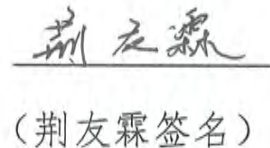 荆友霖
（荆友霖签名）